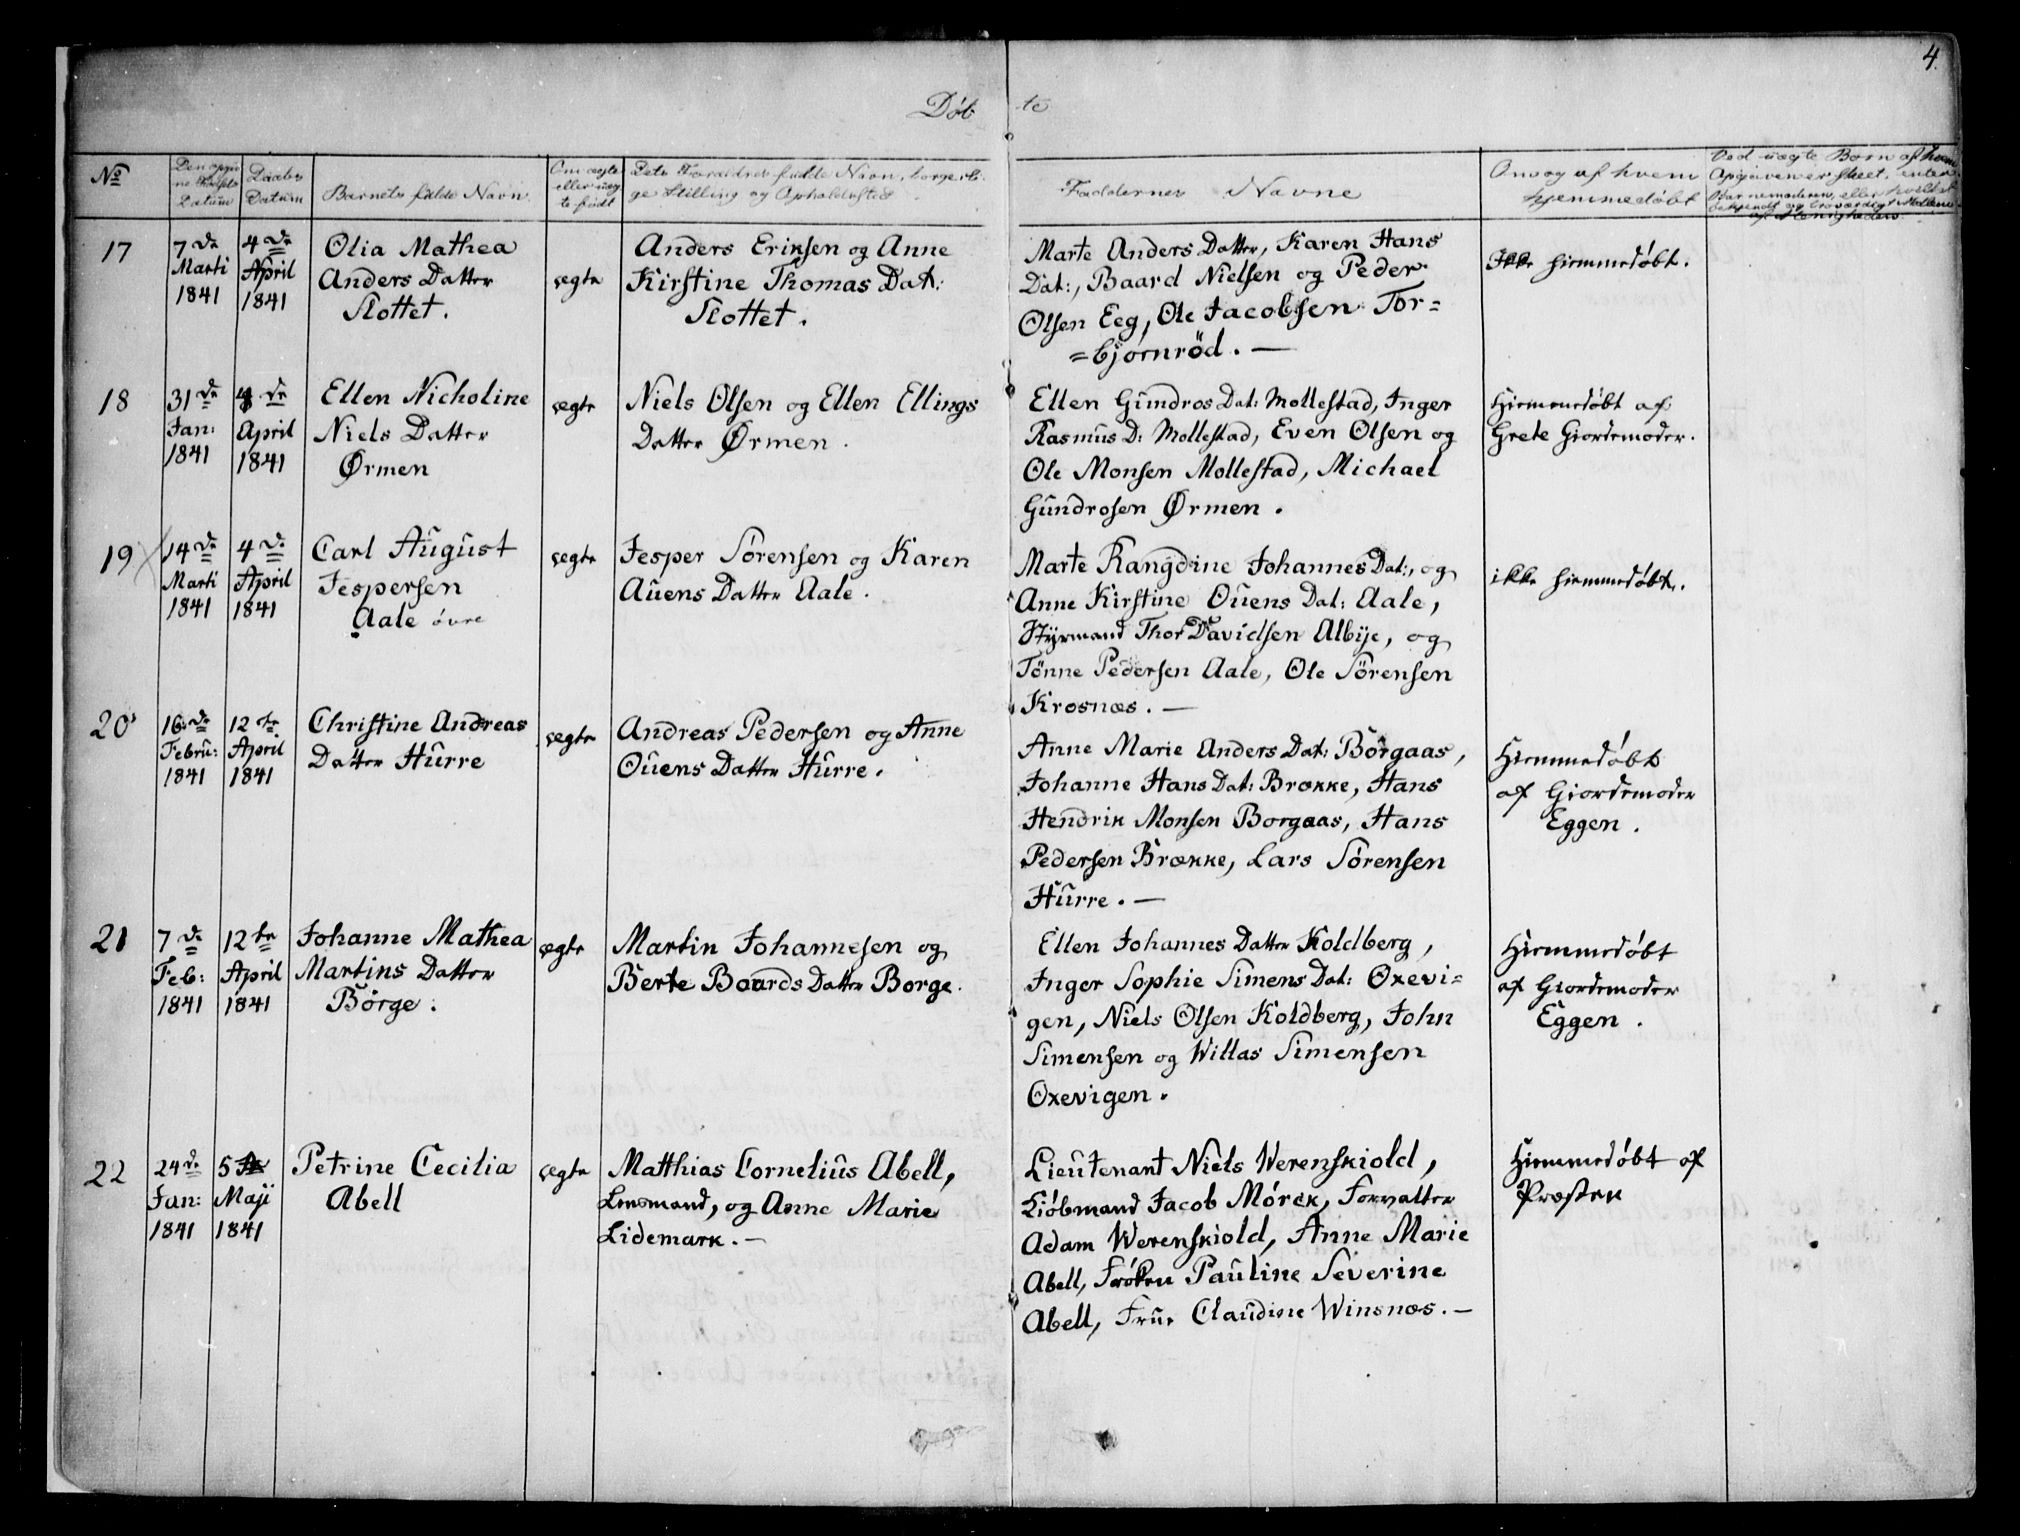 4.
Døbte
No
Den opgivne Fødsels Datum
Daabs Datum
Barnets fulde Navn.
Om ægte eller uægte født
Dets Forældres fulde Navn, borgerlige Stilling og Opholdssted
Faddernes Navne
Om og af hvem hjemmedøbt
Ved uægte Børn af hvem Opgaven er skeet, enten Barnemoderen, eller hvilket bekjendt og troværdigt Mellem
17
7de Marti 1841
4de April 1841
Olia Mathea
Anders Datter
Slottet.
ægte
Anders Eriksen og Anne
Kirstine Thomas Dat:
Slottet.
Marte Anders Datter, Karen Hans
Dat:, Baard Nielsen og Peder
Olsen Eeg, Ole Jacobsen Tor=
=bjørnrød. —
Ikke hiemmedøbt.
18
31de Jan: 1841
4de April 1841
Ellen Nicholine
Niels Datter
Ørmen
ægte
Niels Olsen og Ellen Ellings
Datter Ørmen.
Ellen Gundros Dat: Mollestad, Inger
Rasmus D: Mollestad, Even Olsen og
Ole Monsen Mollestad, Michael
Gundrosen Ørmen.
Hiemmedøbt af
Grete Giordemoder.
19
14de Marti 1841
4de April 1841
Carl August
Jespersen
Aale øvre
ægte
Jesper Sørensen og Karen
Auens Datter Aale.
Marte Rangdine Johannes Dat:, og
Anne Kirstine Ouens Dat: Aale,
Styrmand Thor Davidsen Albye, og
Tønne Pedersen Aale, Ole Sørensen
Krosnæs. —
ikke hiemmedøbt.
20
16de Febru: 1841
12te April 1841
Christine Andreas
Datter Hurre
ægte
Andreas Pedersen og Anne
Ouens Datter Hurre.
Anne Marie Anders Dat: Borgaas,
Johanne Hans Dat: Brække, Hans
Hendrik Monsen Borgaas, Hans
Pedersen Brække, Lars Sørensen
Hurre. —
Hiemmedøbt
af Giordemoder
Eggen.
21
7de Feb: 1841
12te April 1841
Johanne Mathea
Martins Datter
Børge.
ægte
Martin Johannesen og
Berte Baards Datter Borge.
Ellen Johannes Datter Koldberg,
Inger Sophie Simens Dat: Oxevi=
gen, Niels Olsen Koldberg, John
Simensen og Willas Simensen
Oxevigen.
Hiemmedøbt
af Giordemoder
Eggen.
22
24de Jan: 1841
5te Maji 1841
Petrine Cecilia
Abell
ægte
Matthias Cornelius Abell,
Lensmand, og Anne Marie
Lidemark. —
Lieutenant Niels Werenskiold,
Kiøbmand Jacob Mørck, Forvalter
Adam Werenskiold, Anne Marie
Abell, Frøken Pauline Severine
Abell, Frue Claudine Winsnæs. —
Hiemmedøbt af
Præsten